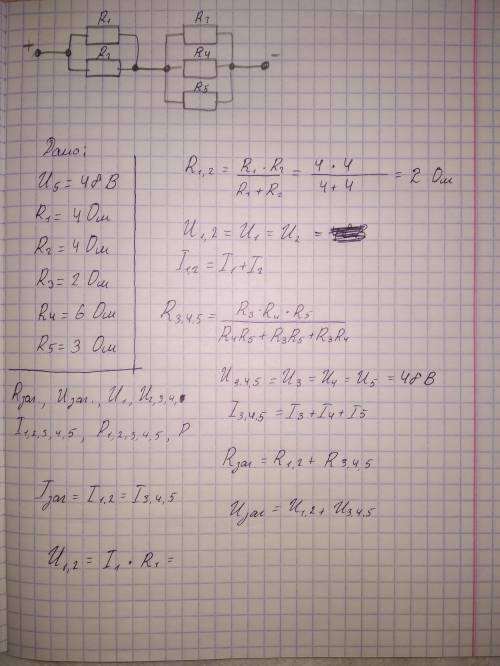 R1 R3
+ -
R2 R4
R5
Дано:
U5 = 48 В
R1 = 4 Ом
R2 = 4 Ом
R3 = 2 Ом
R4 = 6 Ом
R5 = 3 Ом
Rзаг., Uзаг., U1, U2,3,4,
I1,2,3,4,5, P1,2,3,4,5, P
Iзаг = I1,2 = I3,4,5
U1,2 = I1 · R1 =
R1,2 = R1 · R2 / R1 + R2 = 4 · 4 / 4 + 4 = 2 Ом
U1,2 = U1 = U2 =
I1,2 = I1 + I2
R3,4,5 = R3 · R4 · R5 / R4R5 + R3R5 + R3R4
U3,4,5 = U3 = U4 = U5 = 48 В
I3,4,5 = I3 + I4 + I5
Rзаг = R1,2 + R3,4,5
Uзаг = U1,2 + U3,4,5